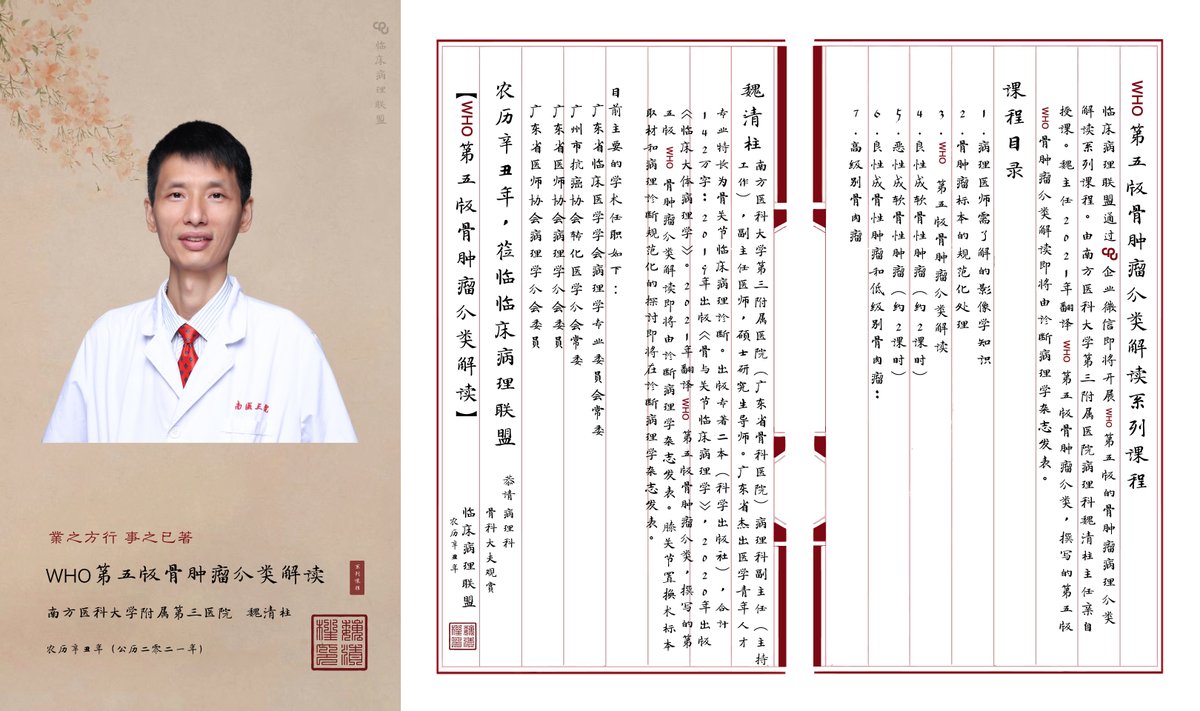 临床病理联盟
南医三院
業之方行 事之已著
WHO第五版骨肿瘤分类解读
系列课程
南方医科大学附属第三医院 魏清柱
农历辛丑年（公历二零二一年）
WHO第五版骨肿瘤分类解读系列课程
临床病理联盟通过企业微信即将开展WHO第五版的骨肿瘤病理分类
解读系列课程。由南方医科大学第三附属医院病理科魏清柱主任亲自
授课。魏主任2021年翻译WHO第五版骨肿瘤分类，撰写的第五版
WHO骨肿瘤分类解读即将由诊断病理学杂志发表。
课程目录
1.病理医师需了解的影像学知识
2.骨肿瘤标本的规范化处理
3.WHO第五版骨肿瘤分类解读
4.良性成软骨性肿瘤（约2课时）
5.恶性成软骨性肿瘤（约2课时）
6.良性成骨性肿瘤和低级别骨肉瘤：
7.高级别骨肉瘤
魏清柱 南方医科大学第三附属医院（广东省骨科医院）病理科副主任（主持
工作），副主任医师，硕士研究生导师。广东省杰出医学青年人才
专业特长为骨关节临床病理诊断。出版专著二本（科学出版社），合计
142万字：2019年出版《骨与关节临床病理学》，2020年出版
《临床大体病理学》。2021年翻译WHO第五版骨肿瘤分类，撰写的第
五版WHO骨肿瘤分类解读即将由诊断病理学杂志发表。膝关节置换术标本
取材和病理诊断规范化的探讨即将在诊断病理学杂志发表。
目前主要的学术任职如下：
广东省临床医学学会病理学专业委员会常委
广州市抗癌协会转化医学分会常委
广东省医师协会病理学分会委员
广东省医师协会病理学分会委员
农历辛丑年，莅临临床病理联盟
【WHO第五版骨肿瘤分类解读】
恭请病理科
骨科大夫观赏
临床病理联盟
农历辛丑年